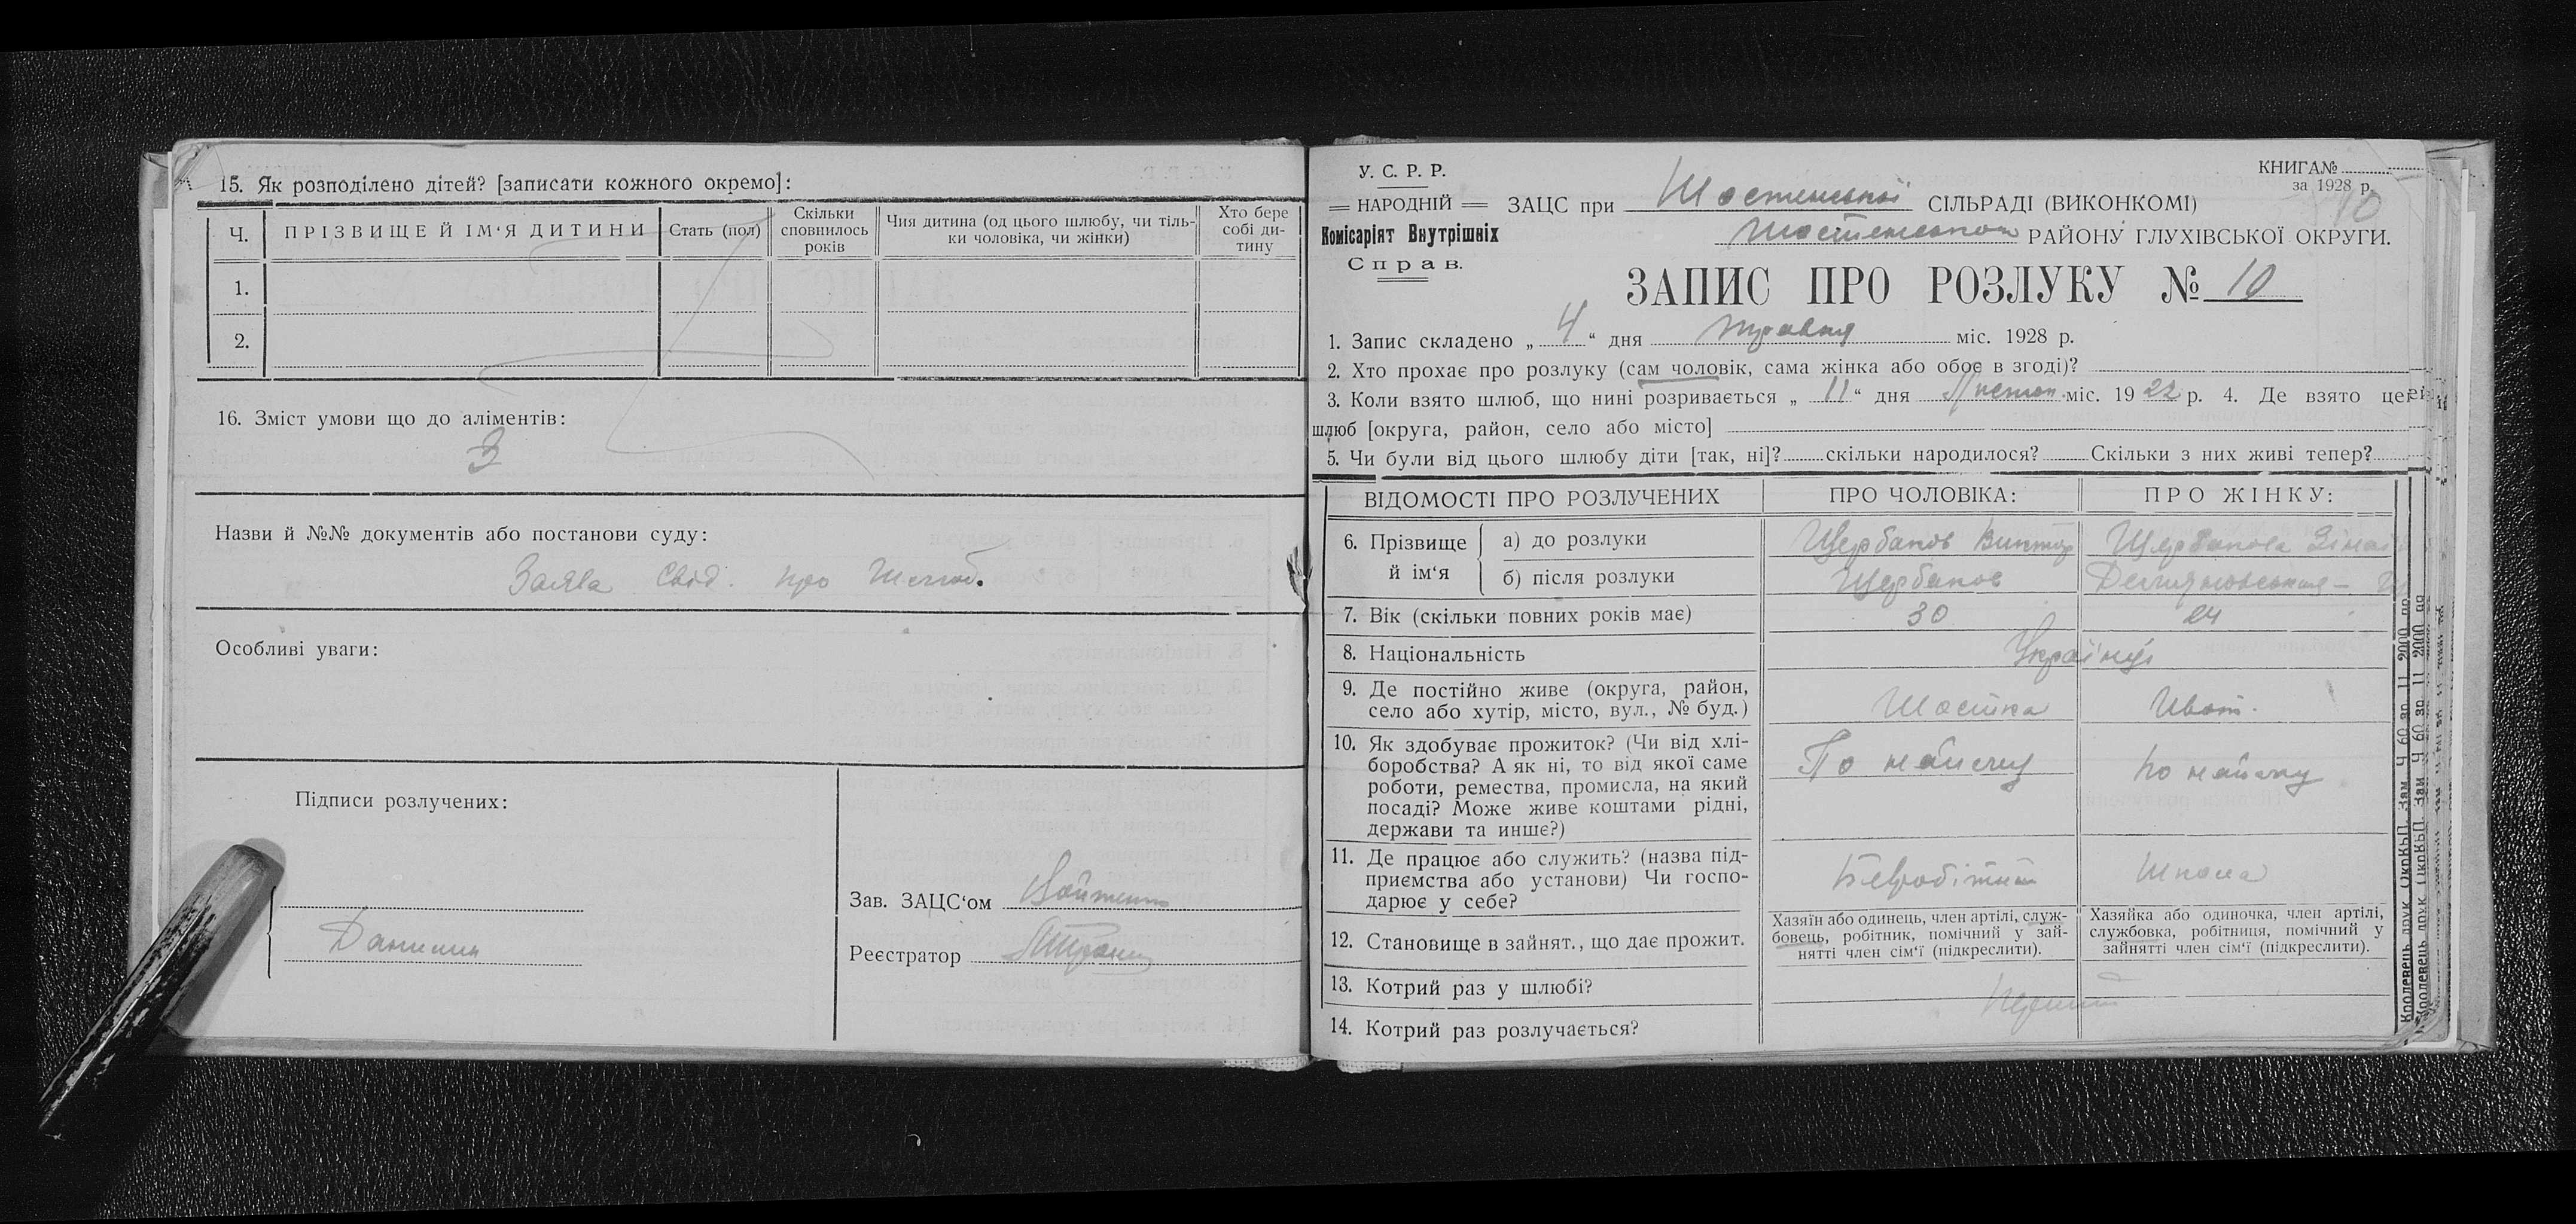 15. Як розподілено дітей? [записати кожного окремо]:
Ч. ПРІЗВИЩЕ Й ІМ‘Я ДИТИНИ Стать (пол) Скільки сповнилось років Чия дитина (од цього шлюбу, чи тіль-ки чоловіка, чи жінки) Хто бере собі ди-тину
1.
2.
16. Зміст умови що до аліментів:
Назви й №№ документів або постанови суду:
Заява Свід. про Шлюб.
Особливі уваги:
Підписи розлучених:
Зав. ЗАЦС‘ом
Реєстратор
У. С. Р. Р.
НАРОДНІЙ
Комісаріят Внутрішніх
Справ.
КНИГА№
за 1928 р.
10
ЗАЦС при Шостенської СІЛЬРАДІ (ВИКОНКОМІ)
Шостенського РАЙОНУ ГЛУХІВСЬКОЇ ОКРУГИ.
ЗАПИС ПРО РОЗЛУКУ № 10
1. Запис складено „ 4 “ дня травня міс. 1928 р.
2. Хто прохає про розлуку (сам чоловік, сама жінка або обоє в згоді)?
3. Коли взято шлюб, що нині розривається „ 11 “ дня міс. 19 22 р. 4. Де взято цей
шлюб [округа, район, село або місто]
5. Чи були від цього шлюбу діти [так, ні]? скільки народилося? Скільки з них живі тепер?
ВІДОМОСТІ ПРО РОЗЛУЧЕНИХ ПРО ЧОЛОВІКА: ПРО ЖІНКУ:
6. Прізвище й ім‘я
а) до розлуки Щербаков Виктор Щербакова Зінаї
б) після розлуки Щербаков
7. Вік (скільки повних років має) 30 24
8. Національність Українці
9. Де постійно живе (округа, район,
село або хутір, місто, вул., № буд.) Шостка Ивот.
10. Як здобуває прожиток? (Чи від хлі-
боробства? А як ні, то від якої саме
роботи, ремества, промисла, на який
посаді? Може живе коштами рідні,
держави та инше?)
По найму по найму
11. Де працює або служить? (назва під-
приємства або установи) Чи госпо-
дарює у себе?
Безробітний Школа
12. Становище в зайнят., що дає прожит.
Хазяїн або одинець, член артілі, служ-
бовець, робітник, помічний у зай-
нятті член сім‘ї (підкреслити).
Хазяйка або одиночка, член артілі,
службовка, робітниця, помічний у
зайнятті член сім‘ї (підкреслити).
13. Котрий раз у шлюбі?
14. Котрий раз розлучається?